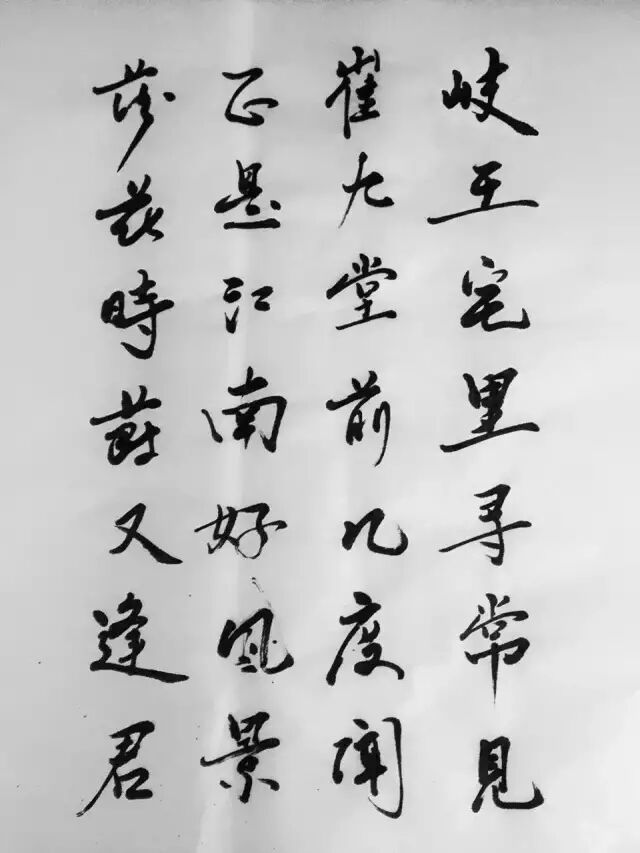 岐王宅里寻常見
崔九堂前几度聞
正是江南好風景
落花時節又逢君